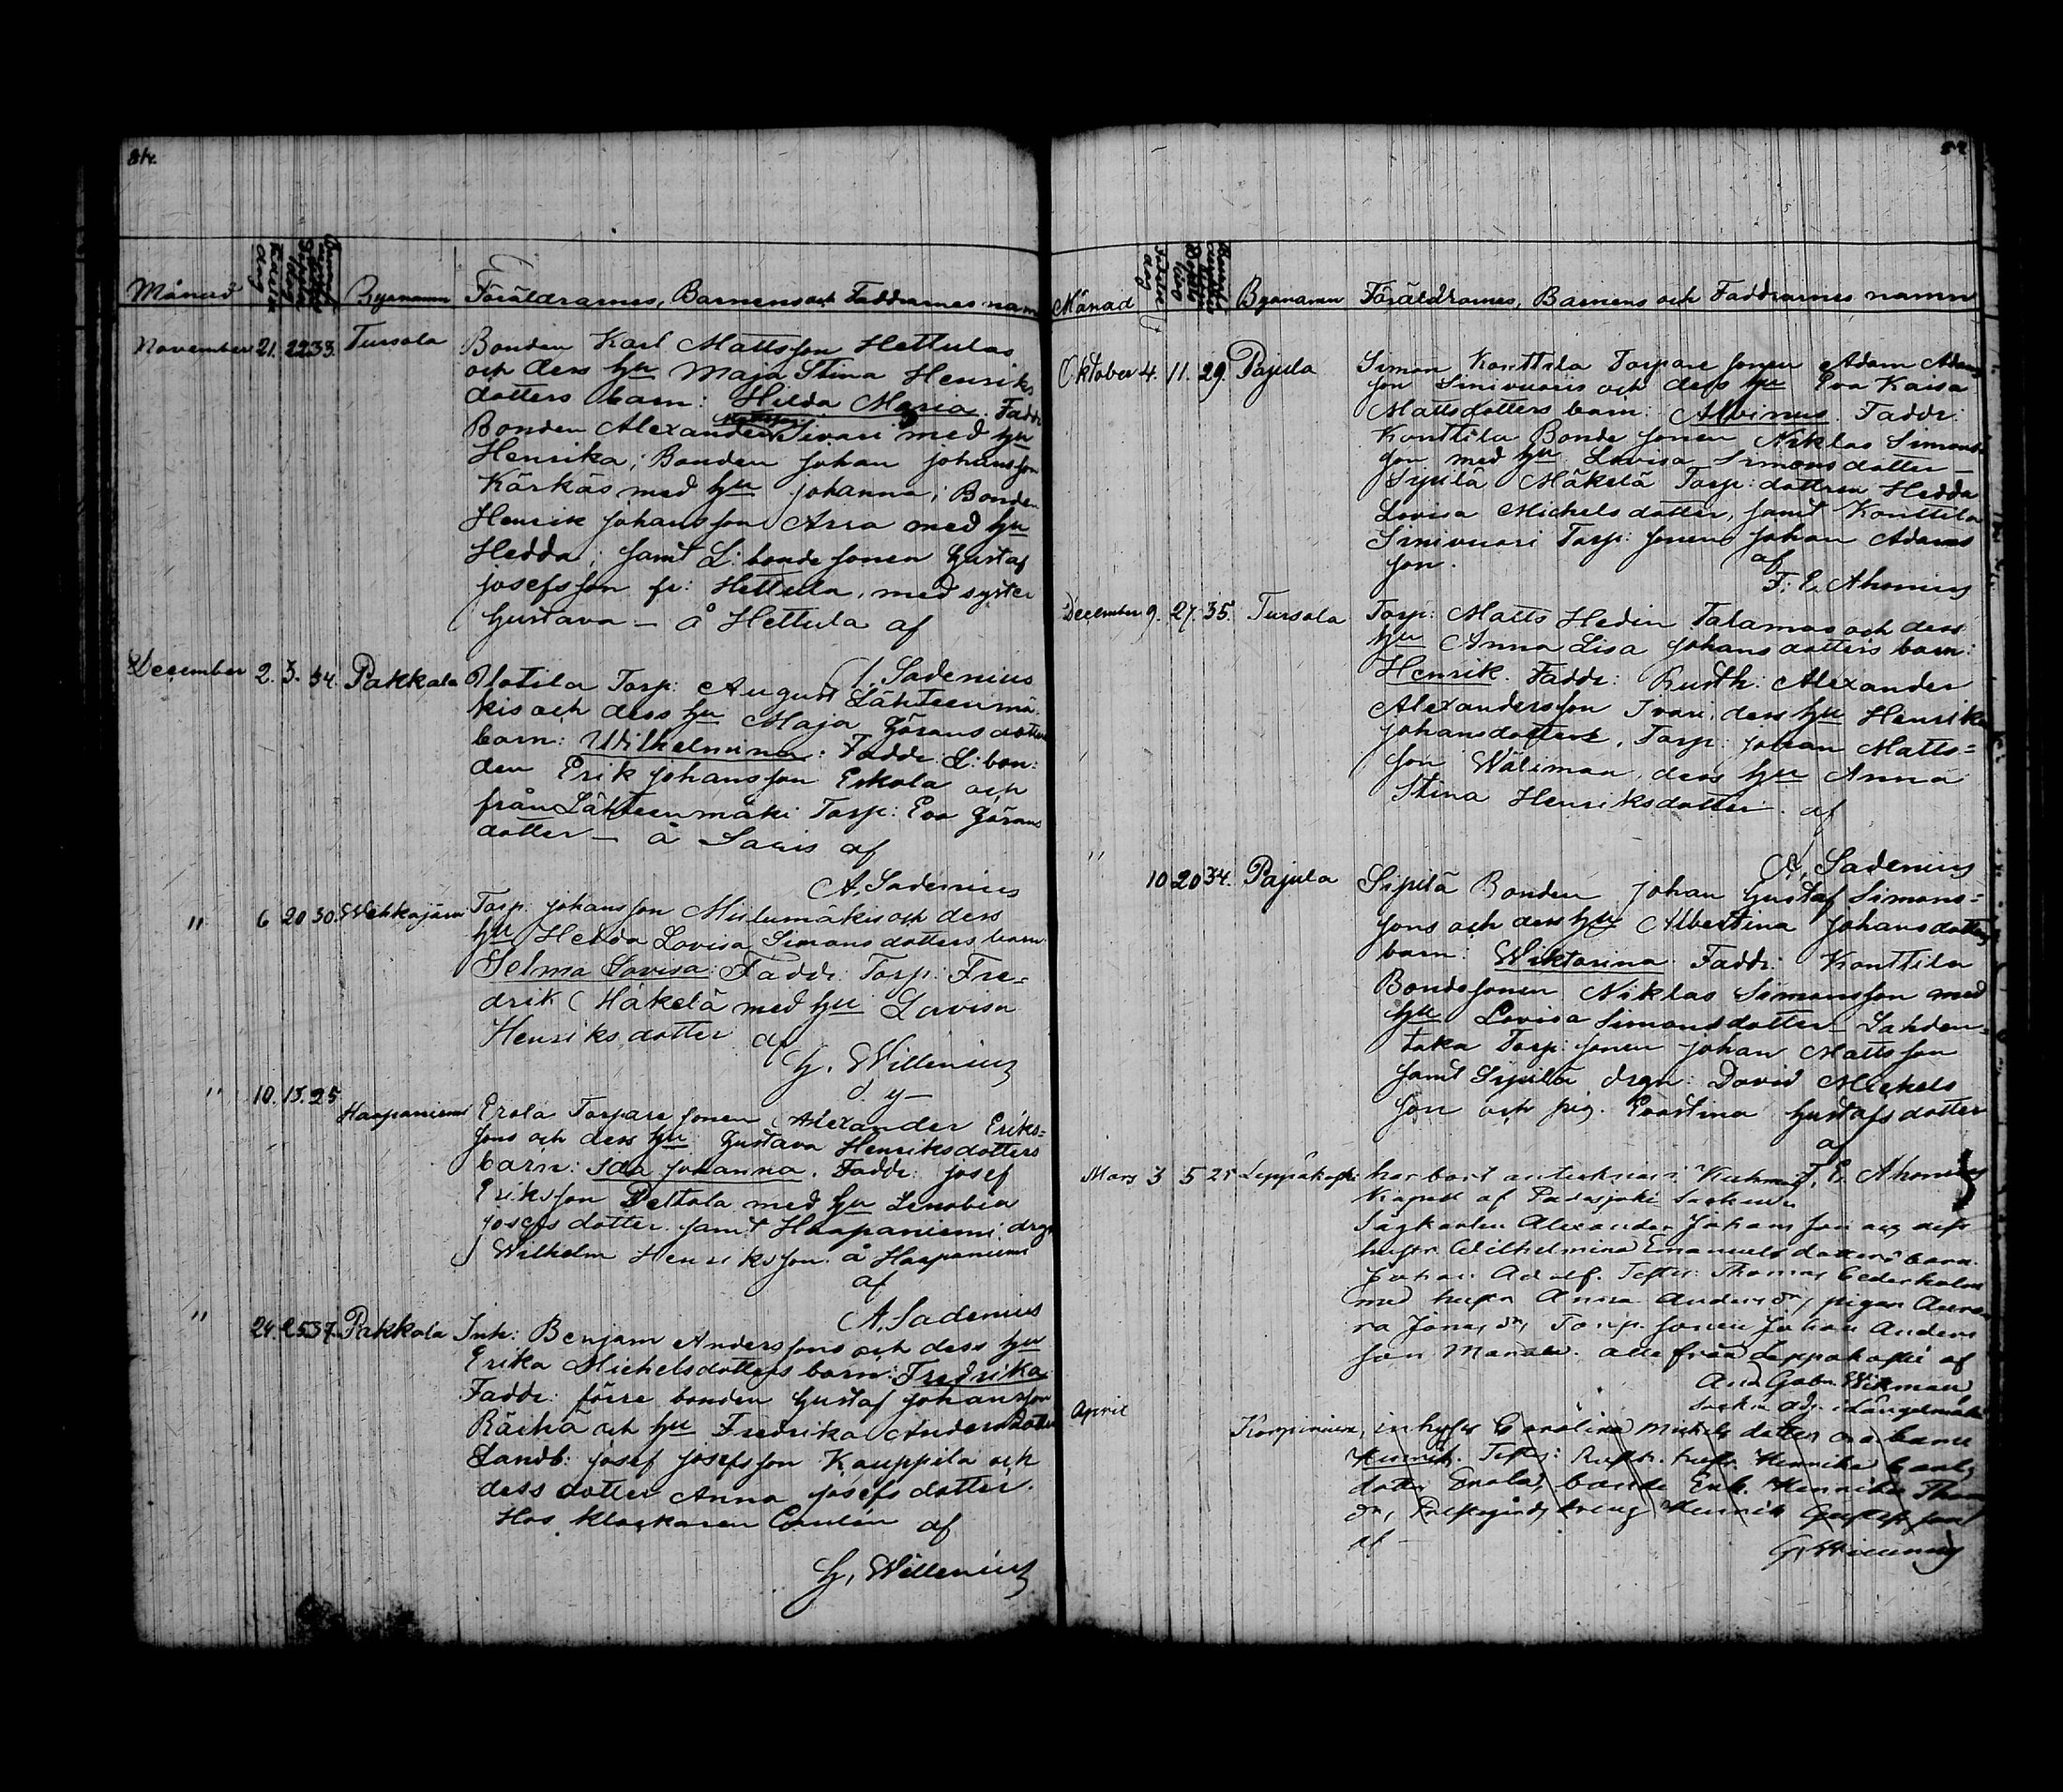 Månad Byanamn Föräldrarnes, Barnens och Faddrarnes namn
November 21. 22 33. Tursola Bonden Karl Mattsson Hettulas
och dess hu Maja Stina Henriks
dotters barn: Hilda Maria. Fadd:
Bonden Alexander Iivari med hu
Henrika; Bonden Johan Johansson
Kärkäs med hu Johanna; Bonden
Henrik Johansson Arra med hu
Hedda; samt L: bondesonen Gustaf
Josefsson fr: Hettula, med syster
Gustava — å Hettula af
A. Sadenius
December 2. 3. 34. Pakkala Ylotila Torp: August Lähteenmä-
kis och dess hu Maja Göransdotters
barn: Wilhelmina: Faddr: L: bon:
den Erik Johansson Eskola och
från Lähteenmäki Torp: Eva Görans
dotter — å Saris af
A. Sadenius
" 6 20 30. Wehkajärvi Torp. Johansson Mislumäkis och dess
hu Hedda Lovisa Simonsdotters barn
Selma Lovisa: Faddr: Torp: Fre-
drik Mäkelä med hu Lovisa
Henriksdotter af
G. Willenius
" 10. 15. 25 Haapaniemi Erola Torparesonen Alexander Eriks=
sons och dess hu Gustava Henriksdotters
barn: Ida Johanna. Faddr: Josef
Eriksson Peltola med hu Zenobia
Josefsdotter samt Haapaniemi drgn
Wilhelm Henriksson å Haapaniemi
af
A. Sadenius
" 24. 25 37. Pakkala Inh: Benjam Anderssons och dess hu
Erika Michelsdotters barn: Fredrika
Faddr: förre bonden Gustaf Johansson
Räihä och hu Fredrika Andersdotter
Landb: Josef Josefsson Kauppila och
dess dotter Anna Josefsdotter.
Hos klockaren af
G. Willenius
Månad Byanamn Föräldrarnes, Barnens och Faddrarnes namn
Oktober 4. 11. 29. Pajula Simon Konttila Torparesonen Adam Adams
son Sinivuoris och dess hu Eva Kaisa
Mattsdotters barn: Albinus. Faddr:
Konttila Bondesonen Niklas Simons
son med hu Lovisa Simonsdotter —
Sipilä Mäkelä Torp: dottren Hedda
Lovisa Michelsdotter, samt Konttila
Sinivuori Torp: sonen Johan Adams
son. af
F. E. Ahonius
December 9. 27. 35. Tursola Torp: Matts Hedin Talamas och dess
hu Anna Lisa Johansdotters barn:
Henrik. Faddr: Rusth: Alexander
Alexandersson Ivari, dess hu Henrika
Johansdotter, Torp: Johan Matts=
son Wäliman, dess hu Anna
Stina Henriksdotter. af
A. Sadenius
" 10 20 34. Pajula Sipilä Bonden Johan Gustaf Simons=
sons och dess hu Albertina Johansdotters
barn: Wiktorina. Faddr: Konttila
Bondesonen Niklas Simonsson med
hu Lovisa Simonsdotter — Lahden=
taka Torp: sonen Johan Mattsson
samt Sipilä drgn: David Michels
son och pig. Evastina Gustafsdotter
af
F. E. Ahonius
Mars 3 5 25 Leppäkoski har bort antecknas i
Kapell af Padasjoki Socken
Sågkarlen Alexander Johansson och dess
hustr. Wilhelmina Emanuelsdotters barn
Johan Adolf. Testes: Thomas Cederholm
med hustr. Anna Anders dr, pigan Auro-
ra Jonas dr, Torp. sonen Johan Anders
son alle från Leppäkoski af
And. Gabr. Wikman
April Korpiniemi, inhyses Carolina Michels dotters oä. barn
Henrik. Testes: Rusth. hustr. Henrika Carls
dotter Erola, bonde Enk. Henrika Thom
dr, dreng Henrik Gustafsson
af G. Willenius